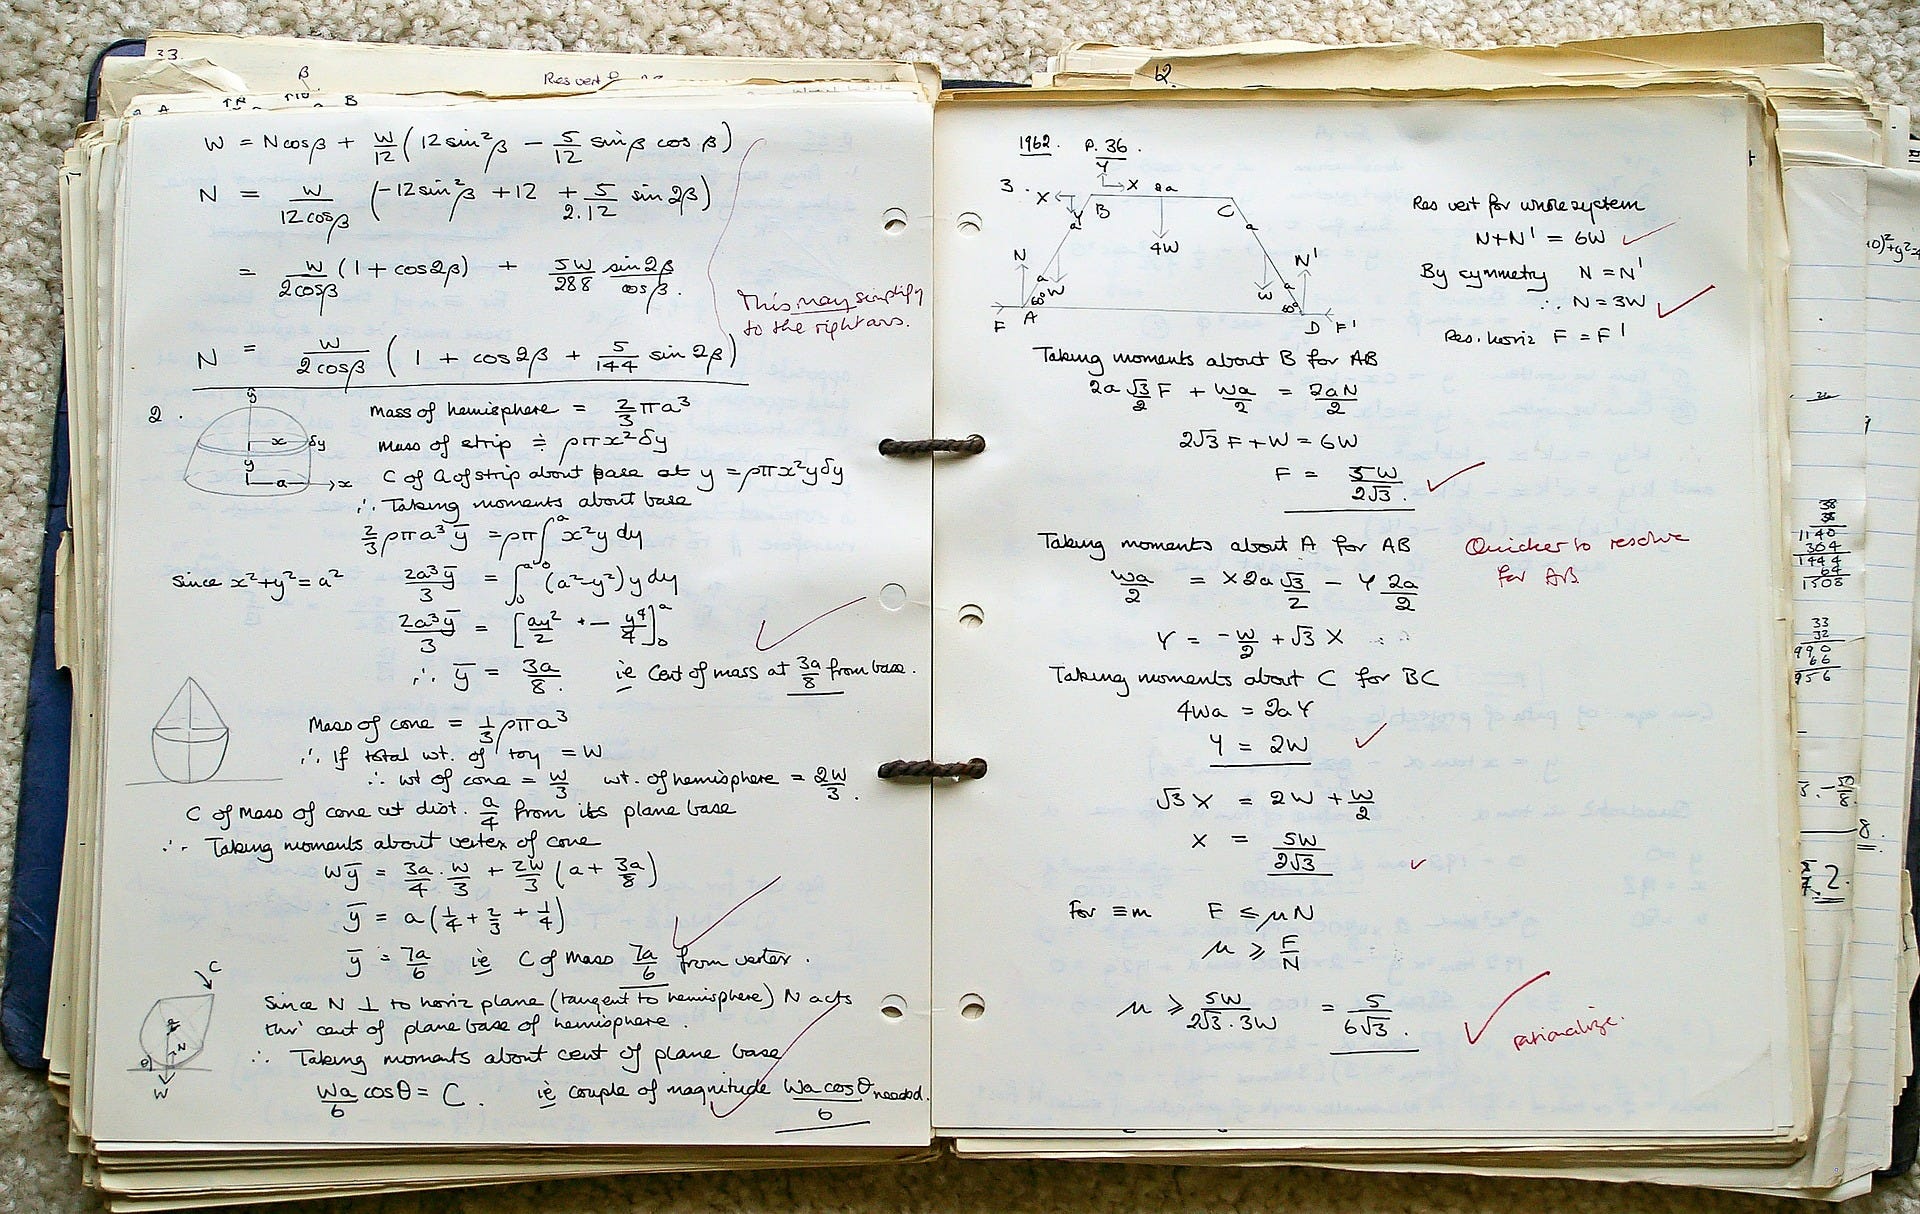 33.
β
Res vert
A
B
W = Ncosβ + W/12 (12 sin²β − 5/12 sinβ cosβ)
N = W/12cosβ (−12sin²β + 12 + 5/2.12 sin 2β)
= W/2cosβ (1 + cos2β) + 5W/288 sin2β/cosβ.
This may simplify
to the right ans.
N = W/2cosβ (1 + cos2β + 5/144 sin 2β)
2.
y
x
δy
y
a
x
Mass of hemisphere = 2/3 πa³
Mass of strip ≑ ρπx²δy
C of G of strip about base at y = ρπx²yδy
∴ Taking moments about base
2/3 ρπa³ȳ = ρπ∫ᵃ x²y dy
Since x²+y²=a² 2a³ȳ/3 = ∫₀ᵃ (a²−y²) y dy
2a³ȳ/3 = [ay²/2 − y⁴/4]₀ᵃ
∴ ȳ = 3a/8. ie Cent of mass at 3a/8 from base.
Mass of cone = 1/3 ρπa³
∴ If total wt. of toy = W
∴ wt of cone = W/3 wt. of hemisphere = 2W/3.
C of Mass of cone at dist. a/4 from its plane base
∴ Taking moments about vertex of cone
Wȳ = 3a/4 . W/3 + 2W/3 (a + 3a/8)
ȳ = a(1/4 + 2/3 + 1/4)
ȳ = 7a/6 ie C of Mass 7a/6 from vertex.
C
θ
N
W
Since N ⊥ to horiz plane (tangent to hemisphere) N acts
thr' cent of plane base of hemisphere.
∴ Taking moments about cent of plane base
Wa/6 cosθ = C. ie couple of magnitude Wa cosθ/6 needed.
12
1962. P. 36.
3.
Y
X
X
2a
B
C
Y
a
a
4W
N
N'
a
W
W
a
60°
60°
F
A
D
F'
Res vert for whole system
N+N' = 6W
By symmetry N = N'
∴ N = 3W
Res. horiz F = F'
Taking moments about B for AB
2a √3/2 F + Wa/2 = 2aN/2
2√3 F + W = 6W
F = 5W/2√3.
Taking moments about A for AB
Quicker to resolve
for AB
Wa/2 = X 2a √3/2 − Y 2a/2
Y = −W/2 + √3 X
Taking moments about C for BC
4Wa = 2aY
Y = 2W
√3 X = 2W + W/2
X = 5W/2√3
for ≡m F ≤ μN
μ ≥ F/N
μ ≥ 5W/2√3.3W = 5/6√3.
rationalize.
38
38
1140
304
1444
64
1508
33
32
990
66
956
8.
2.